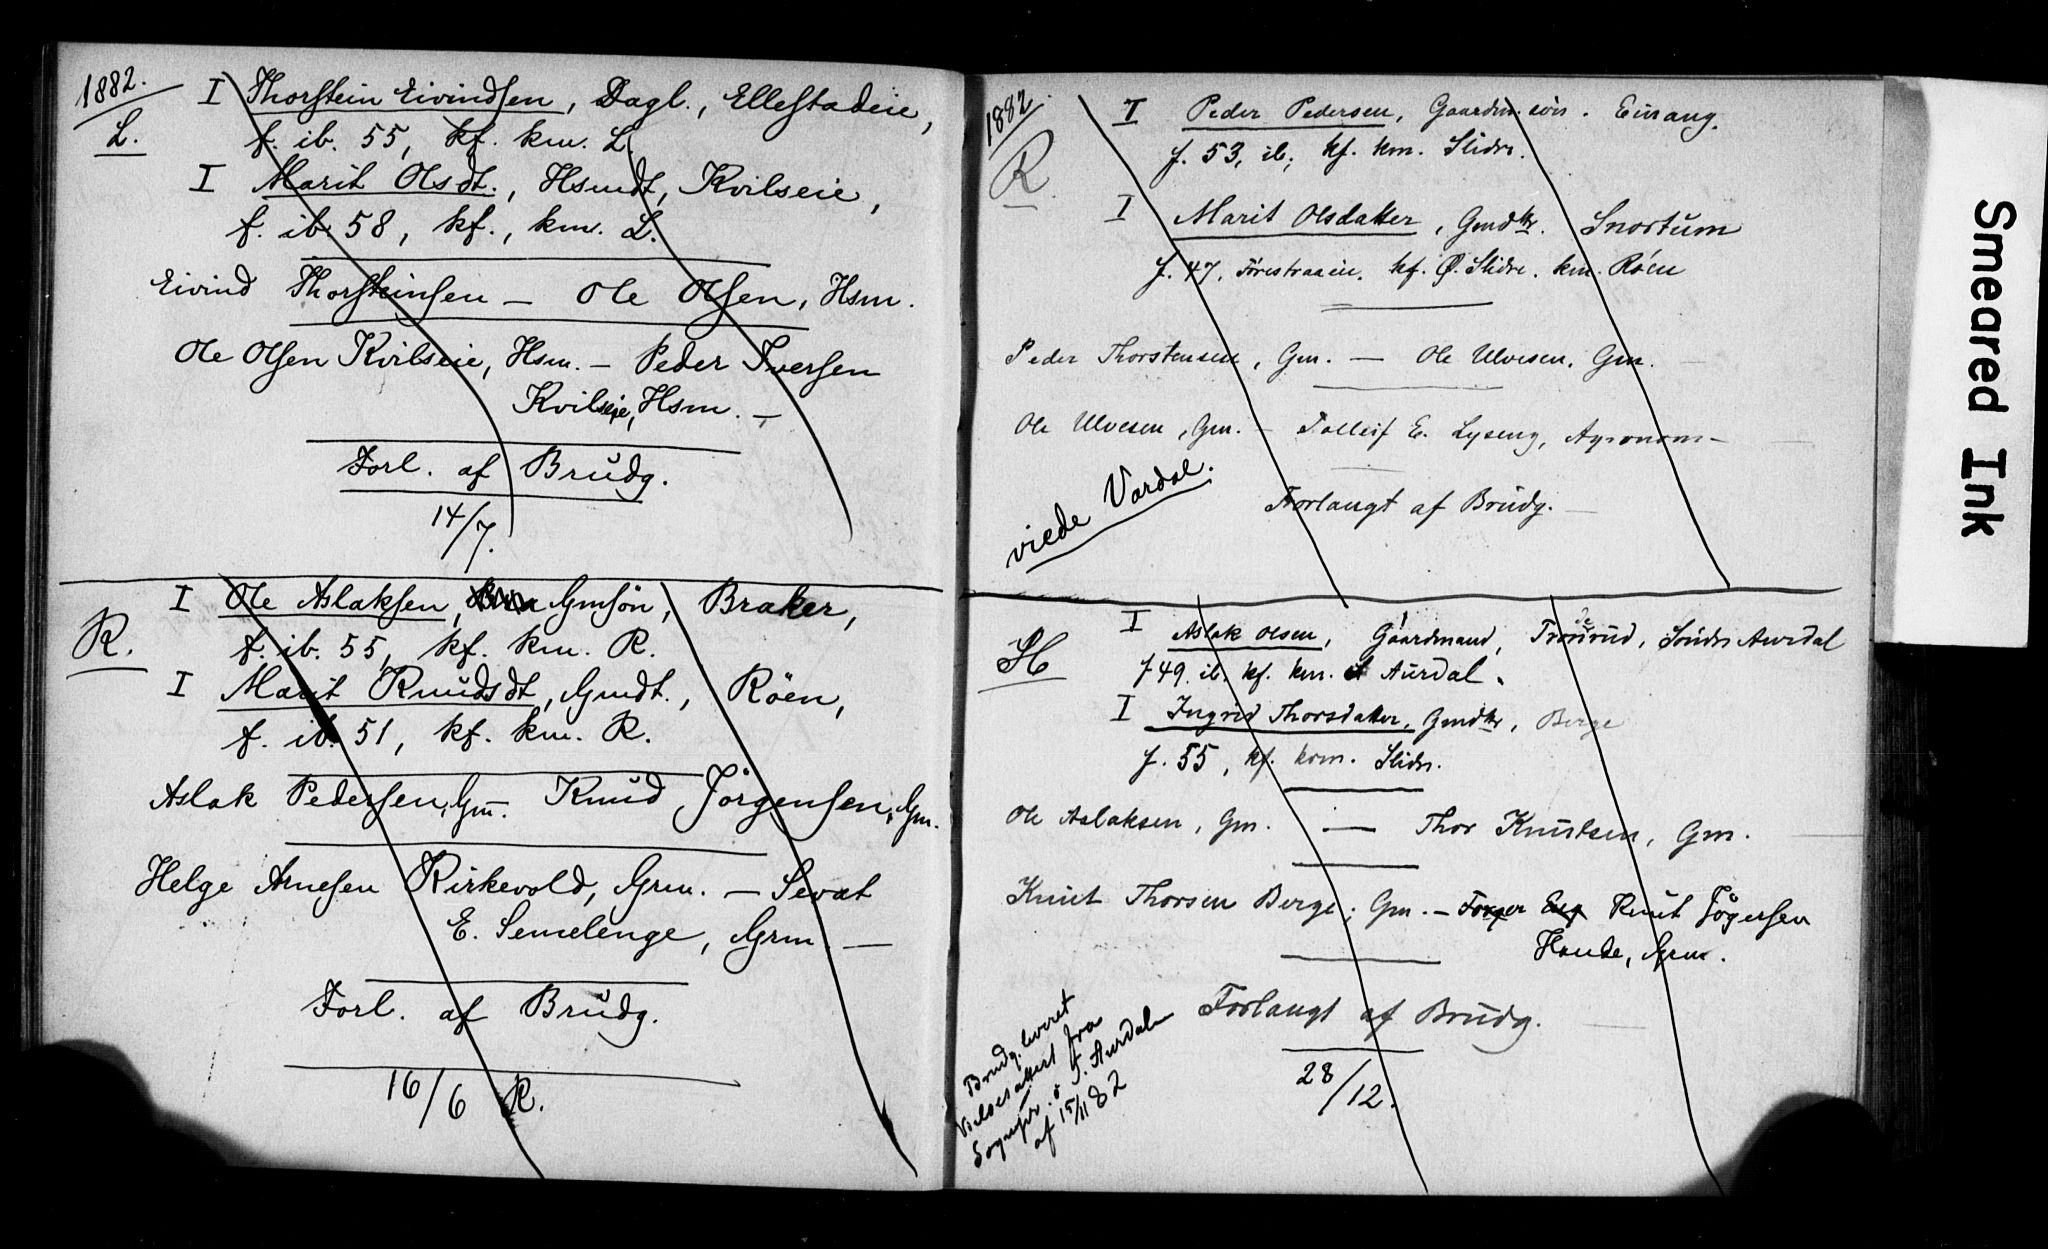 1882.
L.
I Thorstein Eivindsen, Dagl., Ellestadeie,
f. ib. 55, kf. km. L.
I Marit Olsdt., Hsmdt, Kvilseie,
f. ib. 58, kf., km. L.
Eivind Thorsteinsen — Ole Olsen, Hsm.
Ole Olsen Kvilseie, Hsm. — Peder Iversen
Kvilseie, Hsm. —
Forl. af Brudg.
14/7.
R.
I Ole Aslaksen, Gmsön, Braker,
f. ib. 55, kf. km. R.
I Marit Knudsdt, Gmdt., Röen,
f. ib. 51, kf. km. R.
Aslak Pedersen, Gm. — Knud Jörgensen, Gm.
Helge Arnesen Kirkevold, Grm. — Sevat
E. Semelenge, Grm. —
Forl. af Brudg.
16/6 R.
1882.
R
I Peder Pedersen, Gaardm.søn. Einang.
f. 53, ib, kf. km. Slidre.
I Marit Olsdatter, Gmdtr. Snortum
f. 47, kf. Ø. Slidre. km. Röen
Peder Thorstensen, Gm. — Ole Ulvesen, Gm. —
Ole Ulvesen, Gm. — Tolleif E. Lyseng, Agronom —
Forlangt af Brudg. —
viede Vardal.
H
I Aslak Olsen, Gaardmand, Søndre Aurdal
f 49. ib. kf. km. Aurdal.
I Ingrid Thorsdatter, Gmdtr, Berge
f. 55, kf. kom. Slidre.
Ole Aslaksen, Gm. — Thor Knutsen, Gm. —
Knut Thorsen Berge, Gm. — Knut Jögersen
Hande, Grm.
Forlangt af Brudg. —
28/12.
Brudg. leveret
Vielsesattest fra
Sognepr. i S. Aurdal
af 15/11 82
Smeared Ink